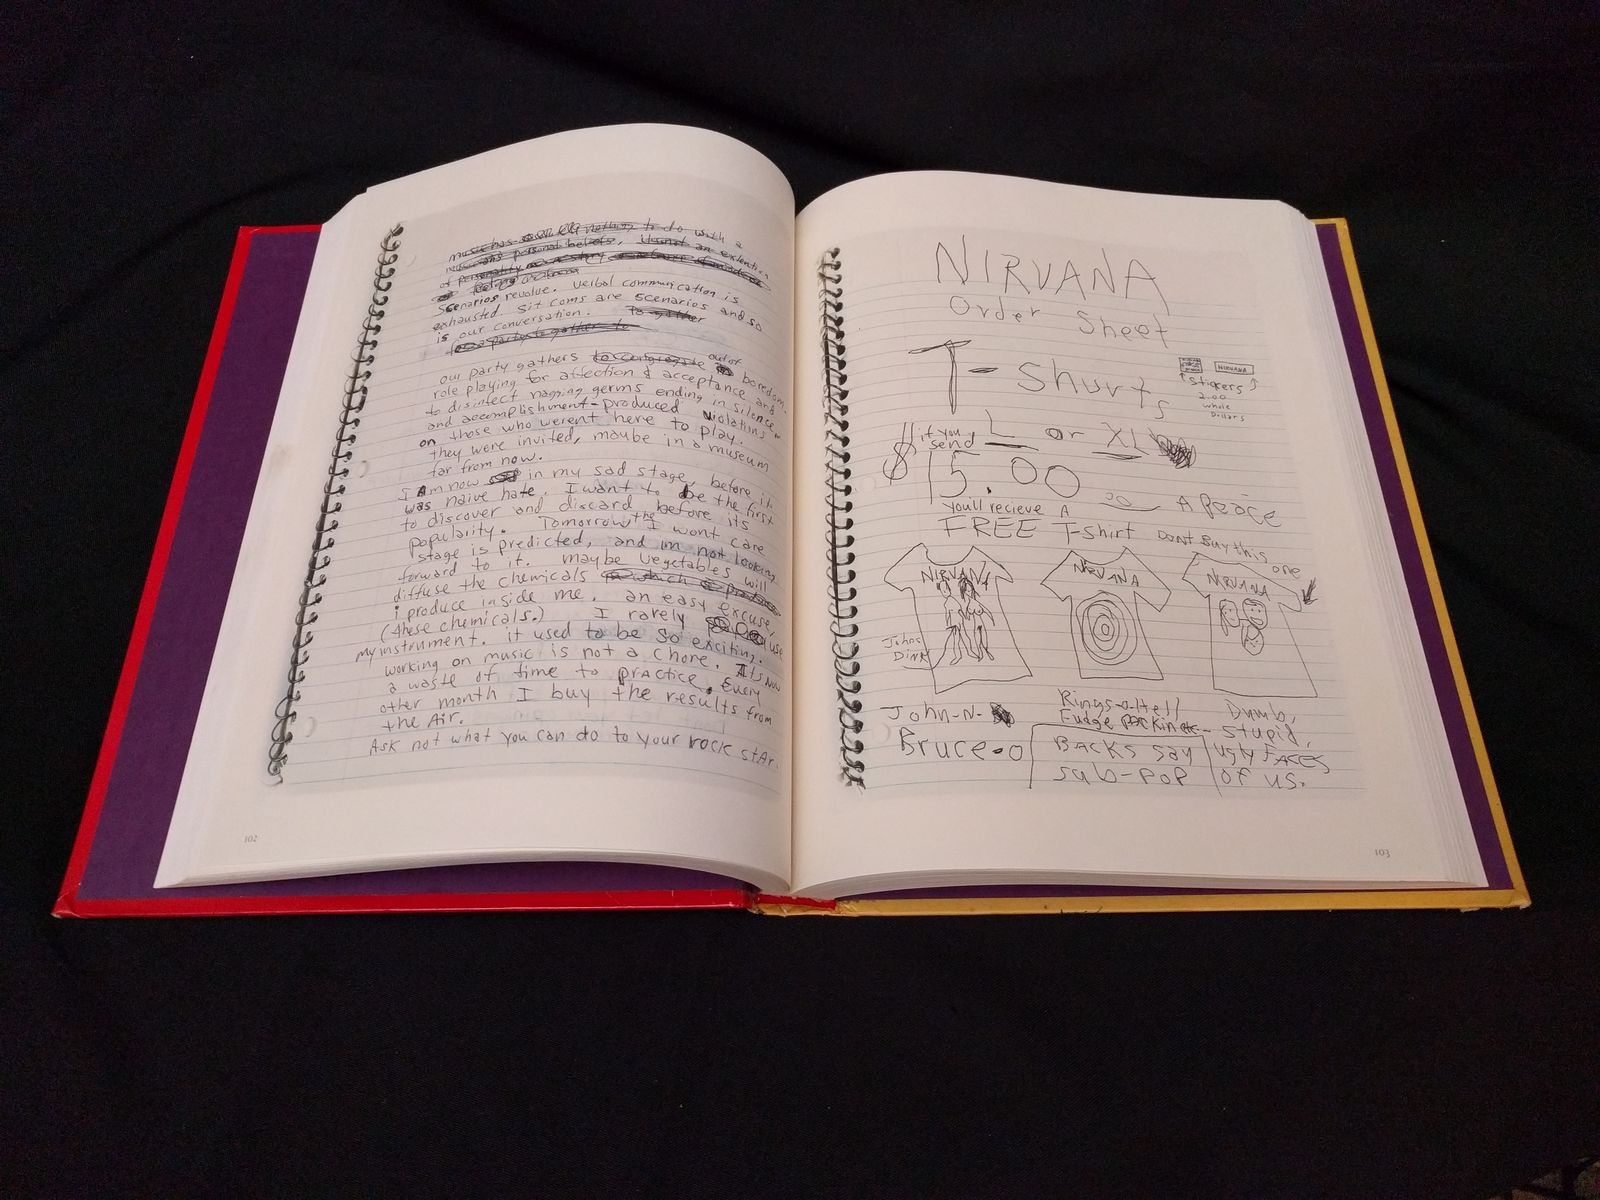 music has nothing to do with a
musicians personal beliefs, its not an extention
of personality
feeling
Scenarios revolve. Verbal communication is
exhausted. Sit coms are scenarios and so
is our conversation. to gather
for a party to gather to
our party gathers to congregate out of boredom.
role playing for affection & acceptance and
to disinfect nagging germs ending in silence.
and accomplishment-produced violations
on those who werent here to play.
they were invited, maybe in a museum
far from now.
I am now in my sad stage, before it
was naive hate. I want to be the first
to discover and discard before its
popularity. Tomorrow the I wont care
stage is predicted, and im not looking
forward to it. maybe vegetables will
diffuse the chemicals which produce
i produce inside me. an easy excuse,
(these chemicals.) I rarely use
my instrument. it used to be so exciting.
working on music is not a chore. Its now
a waste of time to practice. Every
other month I buy the results from
the Air.
Ask not what you can do to your rock stAr.
102
NIRVANA
Order Sheet
T-Shurts
NIRVANA
stickers
2.00
whole
Dollars
$ if you send L or XL
15.00 A peace
youll recieve A
FREE T-shirt Dont Buy this one
NIRVANA NIRVANA NIRVANA
Johns
Dink
John-N-
Bruce-o
Rings-o-Hell
Fudge packin
BACKS say
sub-pop
Dumb,
stupid,
ugly FACES
of us.
103